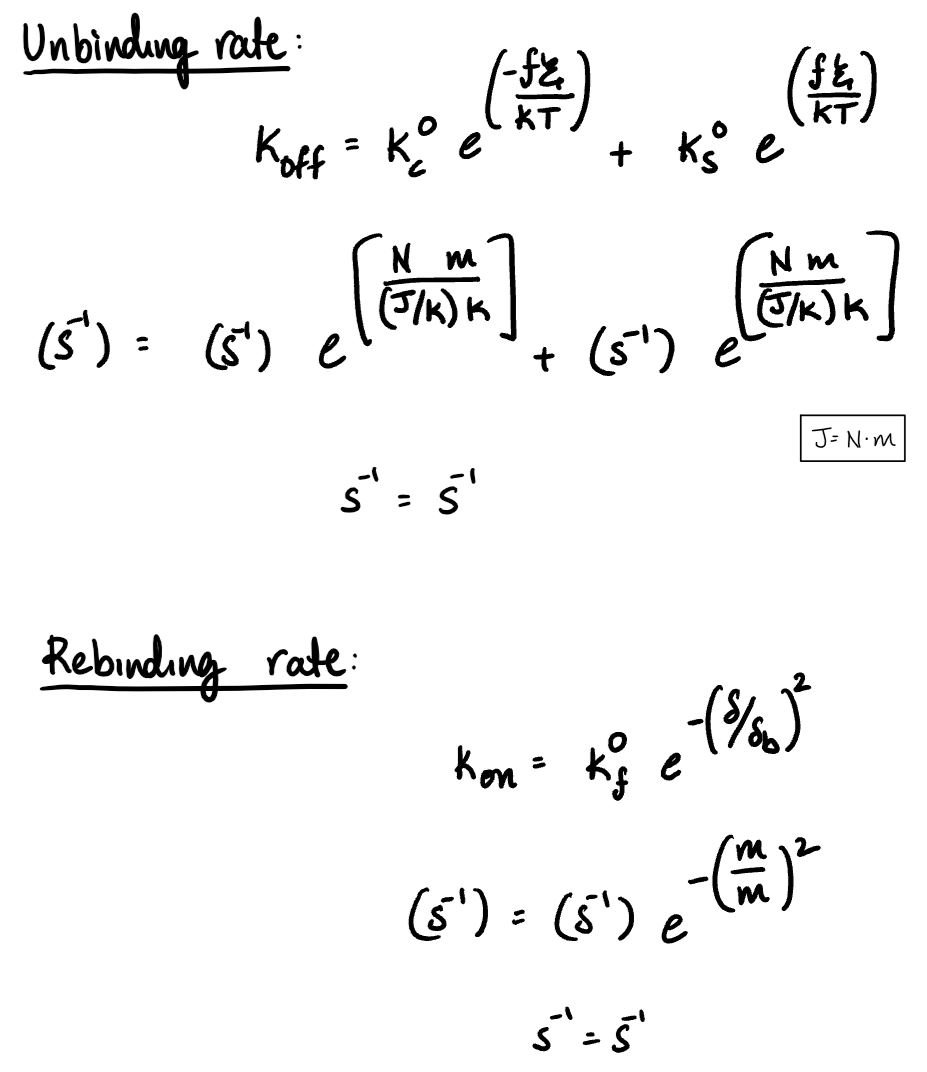 Unbinding rate:
K_off = K_c^0 e^(-fξ/kT) + K_s^0 e^(fξ/kT)
(s^-1) = (s^-1) e^[N m/(J/K) K] + (s^-1) e^[N m/(J/K) K]
J = N·m
s^-1 = s^-1
Rebinding rate:
k_on = k_f^0 e^-(δ/δ_b)^2
(s^-1) = (s^-1) e^-(m/m)^2
s^-1 = s^-1